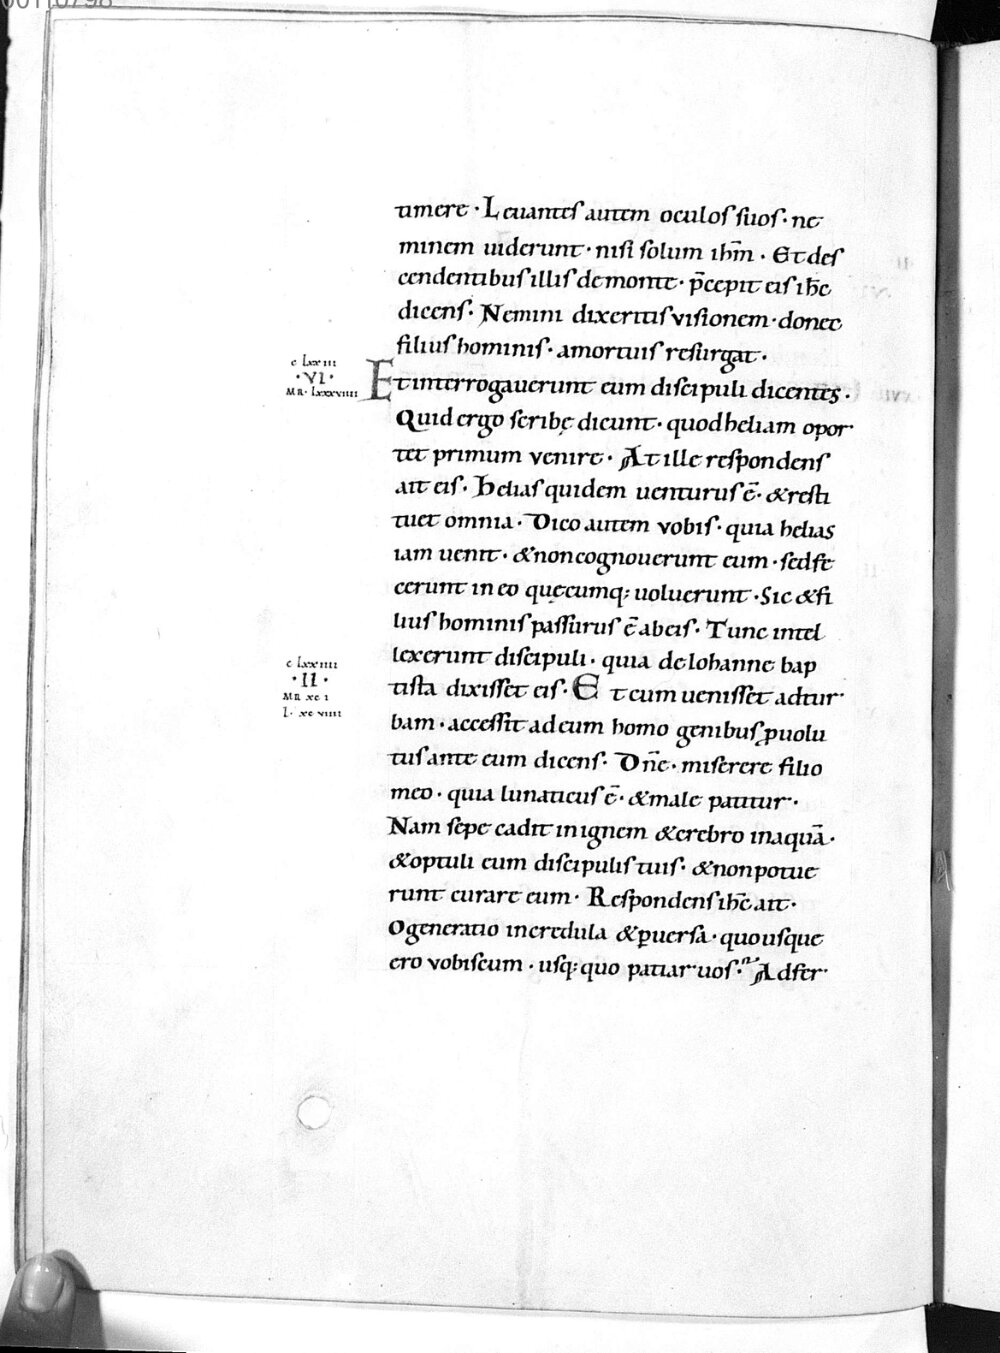 00110798
timere · Leuantes autem oculos suos · ne
minem uiderunt · nisi solum ihm̄ · Et des
cendentibus illis de monte · p̄cepit eis ih̄c
dicens · Nemini dixeritis visionem · donec
filius hominis · amortuis resurgat ·
c lxxiii
· VI ·
MR · lxxxviiii
Et interrogauerunt eum discipuli dicentes ·
Quid ergo scribę dicunt · quod heliam opor
tet primum venire · At ille respondens
ait eis · Helias quidem uenturus ē · & resti
tuet omnia · Dico autem vobis · quia helias
iam uenit · & non cognouerunt eum · sed fe
cerunt in eo quęcumq; uoluerunt · Sic & fi
lius hominis passurus ē ab eis · Tunc intel
lexerunt discipuli · quia de Iohanne bap
c lxxiiii
· II ·
MR xci
I · xcviiii
tista dixisset eis · Et cum uenisset ad tur
bam · accessit ad eum homo genibus ꝓuolu
tus ante eum dicens · Dn̄e · miserere filio
meo · quia lunaticus ē · & male patitur ·
Nam sepe cadit in ignem & crebro in aquā ·
& optuli eum discipulis tuis · & non potue
runt curare eum · Respondens ih̄c ait ·
O generatio incredula & ꝑuersa · quousque
ero vobiscum · usq; quo patiar uos · Adfer